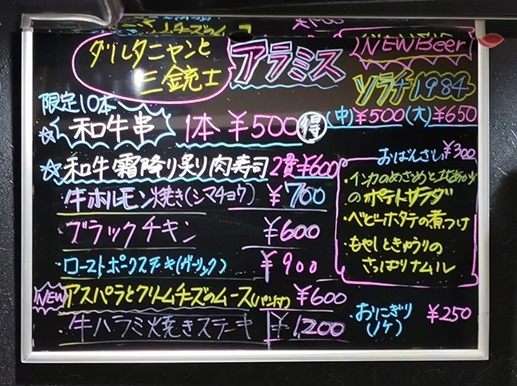 ダルタニャンと
三銃士
アラミス
NEW Beer
ソラチ1984
(中)¥500(大)¥650
限定10本
☆和牛串 1本¥500 得
☆和牛霜降り炙り肉寿司 2貫¥600
牛ホルモン焼き(シマチョウ) ¥700
ブラックチキン ¥600
ローストポークステーキ(ガーリック) ¥900
NEW アスパラとクリームチーズのムース(パン付) ¥600
牛ハラミ焼きステーキ ¥1,200
おばんざい ¥300
・インカのめざめと
のポテトサラダ
・ベビーホタテの煮つけ
・もやしときゅうりの
さっぱりナムル
おにぎり ¥250
(ノリ)